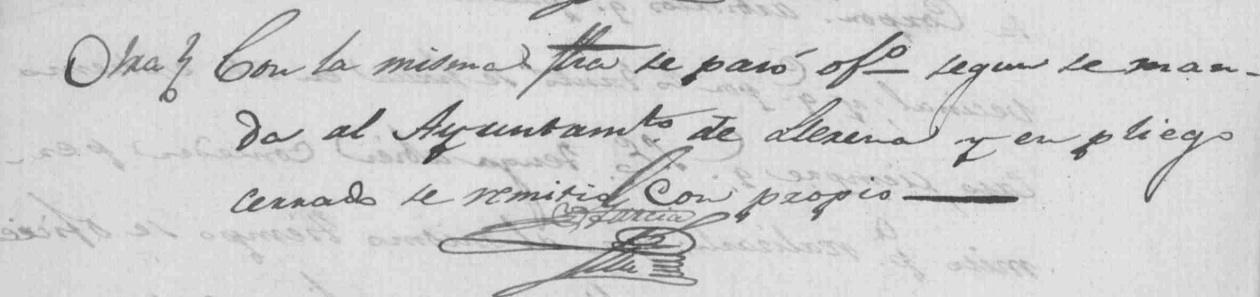 Otra} Con la misma fha se pasó ofº segun se man-
da al Ayuntamto de Llerena y en pliego
cerrado se remitió con propio
Garcia